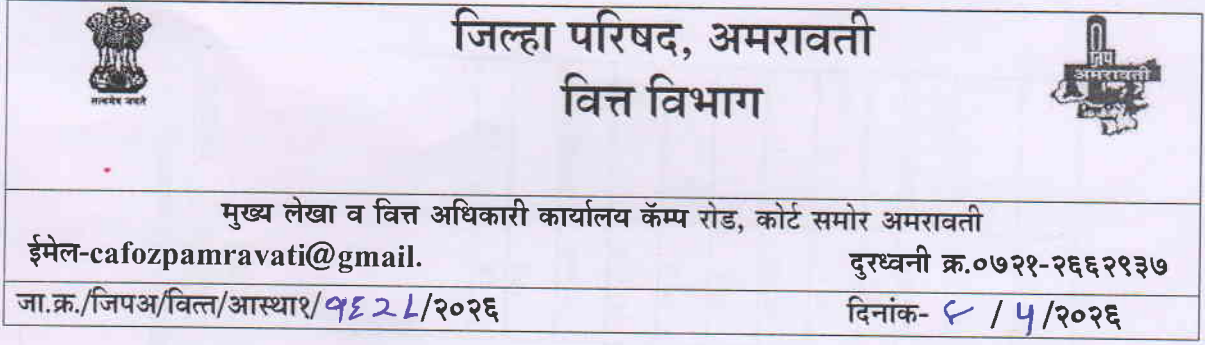 जिल्हा परिषद, अमरावती
वित्त विभाग
सत्यमेव जयते
जिप
अमरावती
मुख्य लेखा व वित्त अधिकारी कार्यालय कॅम्प रोड, कोर्ट समोर अमरावती
ईमेल-cafozpamravati@gmail.
दुरध्वनी क्र.०७२१-२६६२९३७
जा.क्र./जिपअ/वित्त/आस्था१/१६२८/२०२६
दिनांक- /५/२०२६